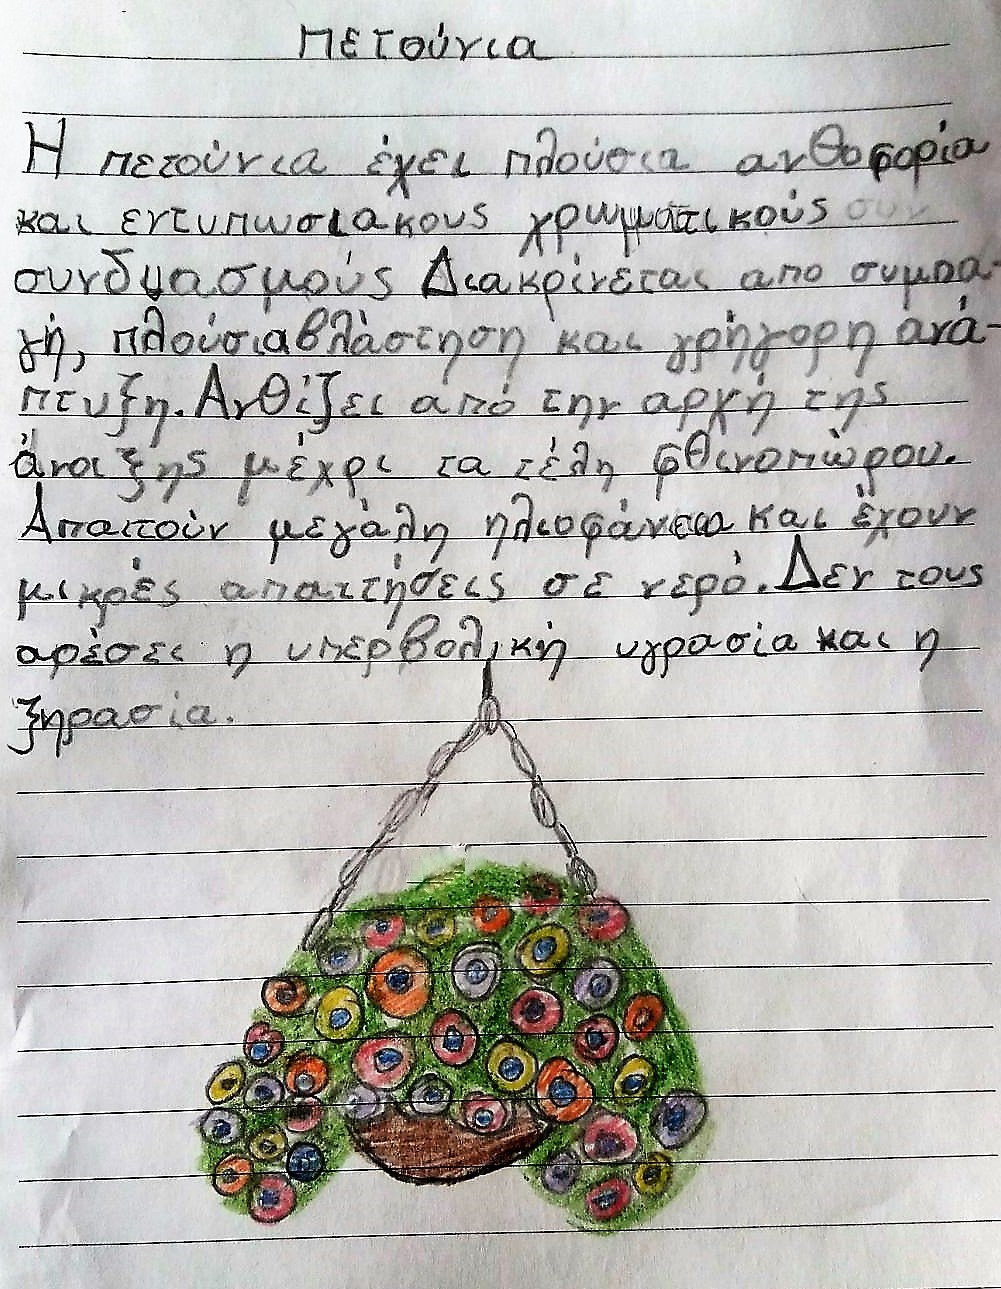 Πετούνια
Η πετούνια έχει πλούσια ανθοφορία
και εντυπωσιακους χρωματικούς συν
συνδυασμούς Διακρίνεται απο συμπα-
γή, πλούσια βλάστηση και γρήγορη ανά-
πτυξη. Ανθίζει από την αρχή της
άνοιξης μέχρι τα τέλη φθινοπώρου.
Απαιτούν μεγάλη ηλιοφάνεια και έχουν
μικρές απαιτήσεις σε νερό. Δεν τους
αρέσει η υπερβολική υγρασία και η
ξηρασία.